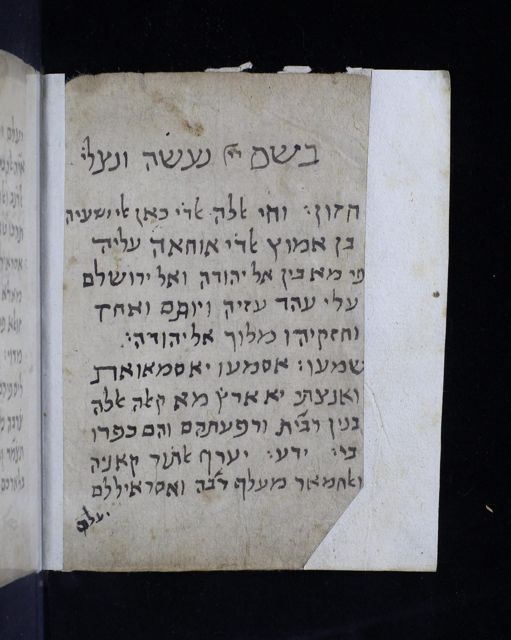 בשם ייי נעשה ונצליח
חזון׃ וחי אלה אלדי כאן אלי ישעיה
בן אמוץ אלדי אוחאה עליה
פי מא בין אל יהודה ואל ירושלם
עלי עהד עזיה ויותם ואחז
וחזקיהו מלוך אל יהודה׃
שמעו׃ אסמעו יא סמאואת
ואנצתי יא ארץ מא קאל אללה
בנין רבית ורפעתהם והם כפרו
בי׃ ידע׃ יערף אלתור קאניה
ואלחמאר מעלף רבה ואסראיל לם
יעלם